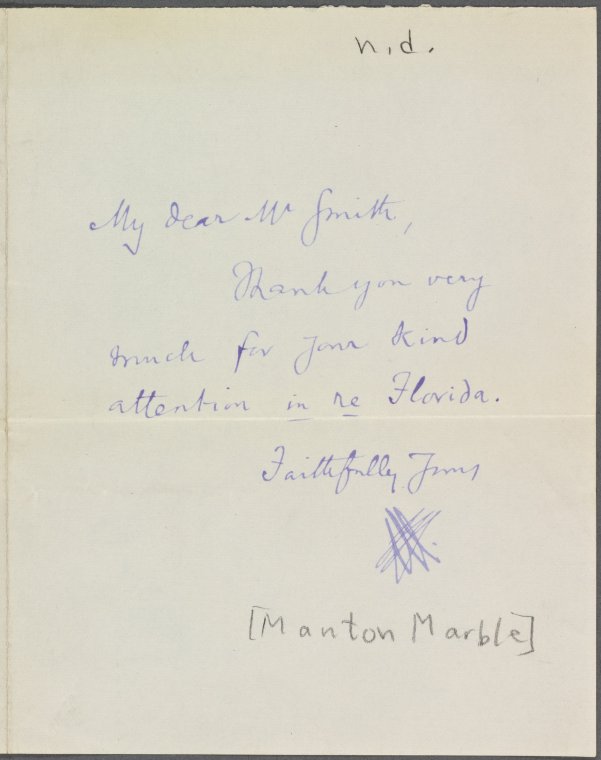 n.d.
My dear Mr Smith,
Thank you very
much for your kind
attention in re Florida.
Faithfully Yours
[Manton Marble]